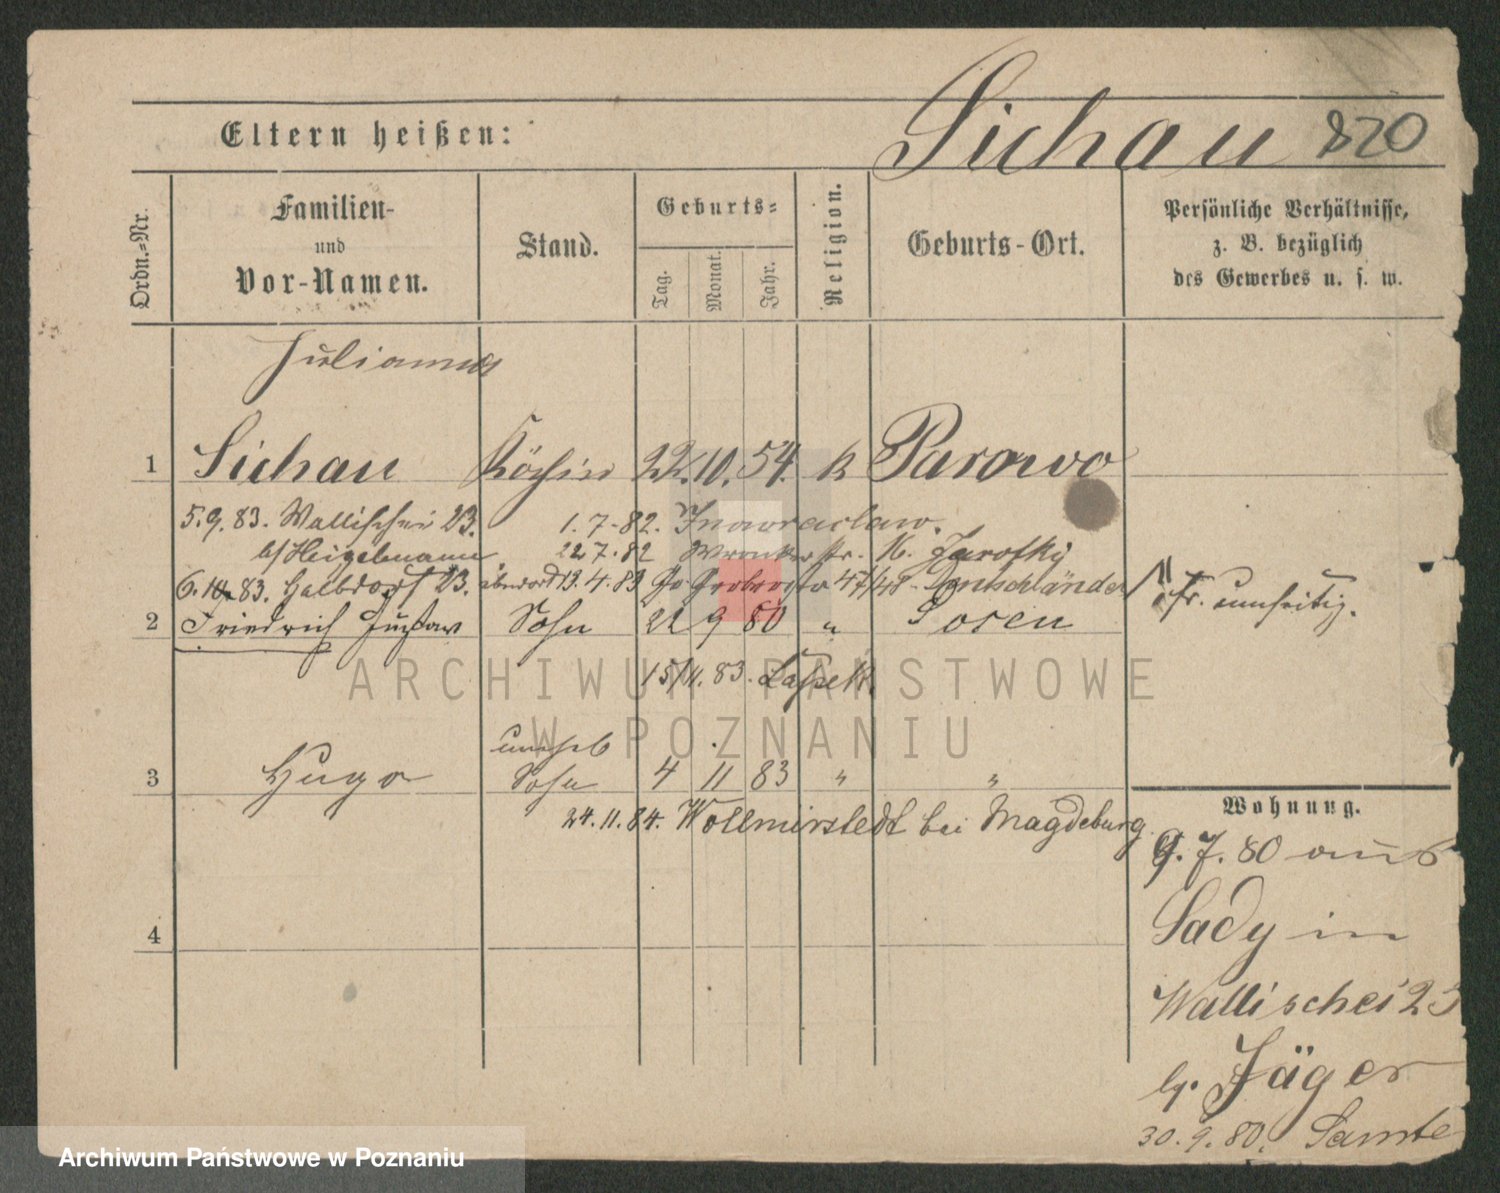 Eltern heißen:
Sichau 820
Ordn.-Nr.
Familien-
und
Vor-Namen.
Stand.
Geburts-
Tag. Monat. Jahr.
Religion.
Geburts-Ort.
Persönliche Verhältnisse,
z. B. bezüglich
des Gewerbes u. s. w.
Julianna
1 Sichau Köchin 22. 10. 54. k Parowo
5.9.83. Wallischei 23. 1.7.82. Inowraclaw.
b/ Heigelmann 22 7.82 Wronkerstr. Jarotzky
6.10.83. Halbdorf 23. 13.4.83 47/48
2 Friedrich Gustav Sohn 22 9 80 " Posen
15/11.83.
unehel
3 Hugo Sohn 4 11 83 " "
24.11.84. Wollmirstedt bei Magdeburg
4
Wohnung.
9.7.80 aus
Sady in
Wallischei 23
b. Jäger
30.9.80. Samte
ARCHIWUM PAŃSTWOWE
W POZNANIU
Archiwum Państwowe w Poznaniu